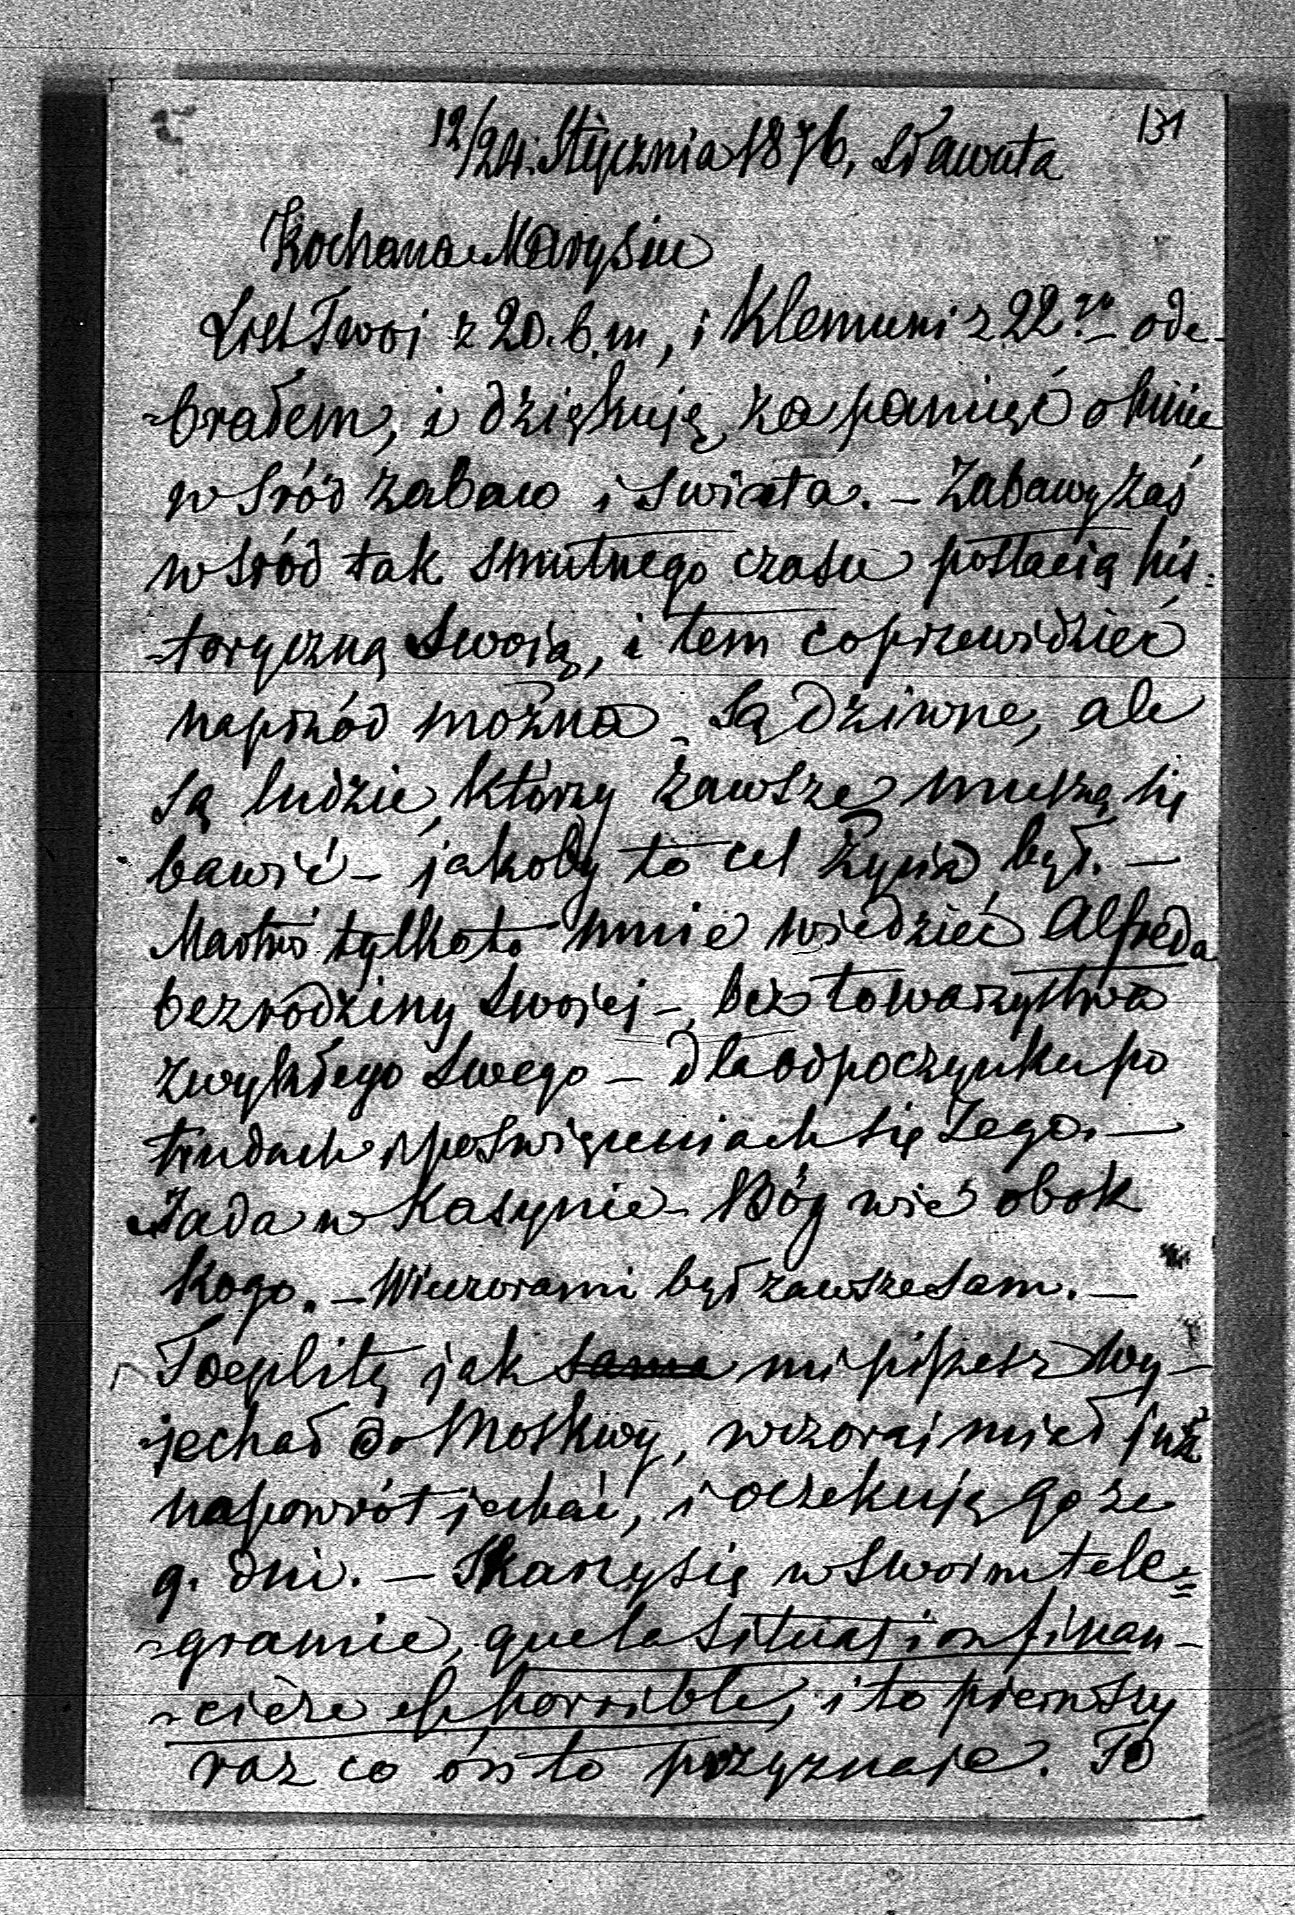 131
12/24. Stycznia 1876, Sławuta
Kochana Marysiu
List Twoj z 20. b. m, i Klemuni z 22go ode-
-brałem, i dziękuję za pamięć o mnie
w śród zabaw i świata. – Zabawy zaś
w śród tak smutnego czasu postacią his=
-toryczną swoją, i tem co przewidzieć
naprzód można są dziwne, ale
są ludzie, którzy zawsze muszą się
bawić – jakoby to cel życia był. –
Martwi tylko to mnie wiedzieć Alfreda
bez rodziny swojej – bez towarzystwa
zwykłego swego – dla odpoczynku po
trudach i poświęceniach się Jego. –
Jada w Kasynie Bóg wie obok
kogo. – Wieczorami był zawsze sam. –
Toeplitz jak sama mi piszesz wy-
-jechał do Moskwy, wczoraj miał już
napowrót jechać, i oczekuję go ze
g. dni. – Skarzy się w swoim tele=
-gramie, que la situation finan-
-cière est horrible, i to pierwszy
raz co ón to przyznaje. To